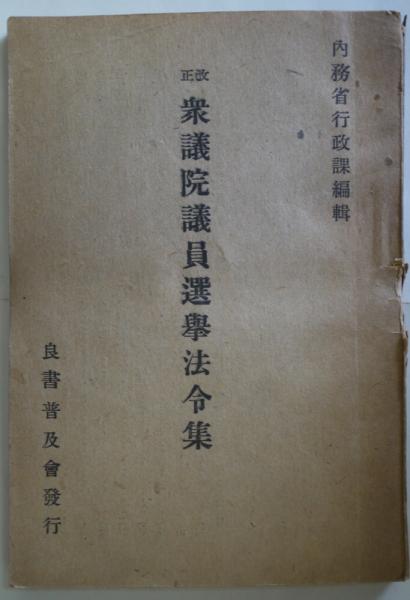 內務省行政課編輯
改正
衆議院議員選擧法令集
良書普及會發行